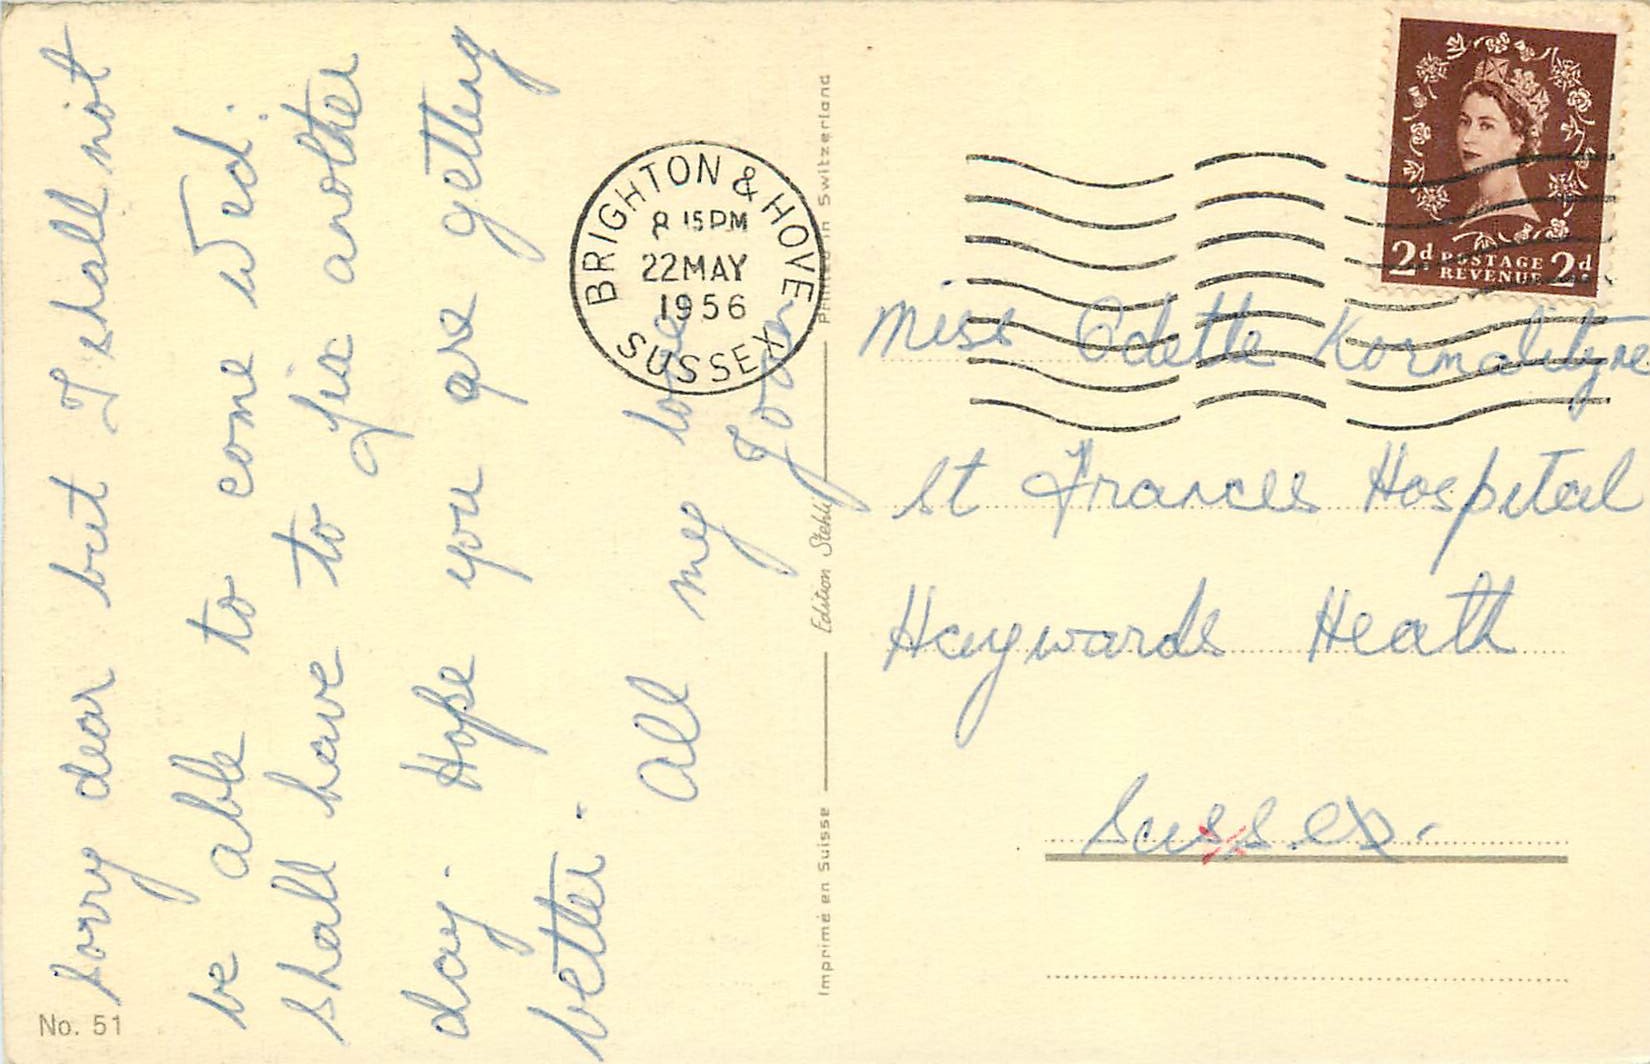 Sorry dear but I shall not
be able to come Wed.
shall have to fix another
day. Hope you are getting
better.
All my love
Joan
No. 51
Imprimé en Suisse
Edition Stehli
Printed in Switzerland
BRIGHTON & HOVE
8 15 PM
22 MAY
1956
SUSSEX
2d POSTAGE REVENUE 2d
Miss Odette
St Frances Hospital
Haywards Heath
Sussex.